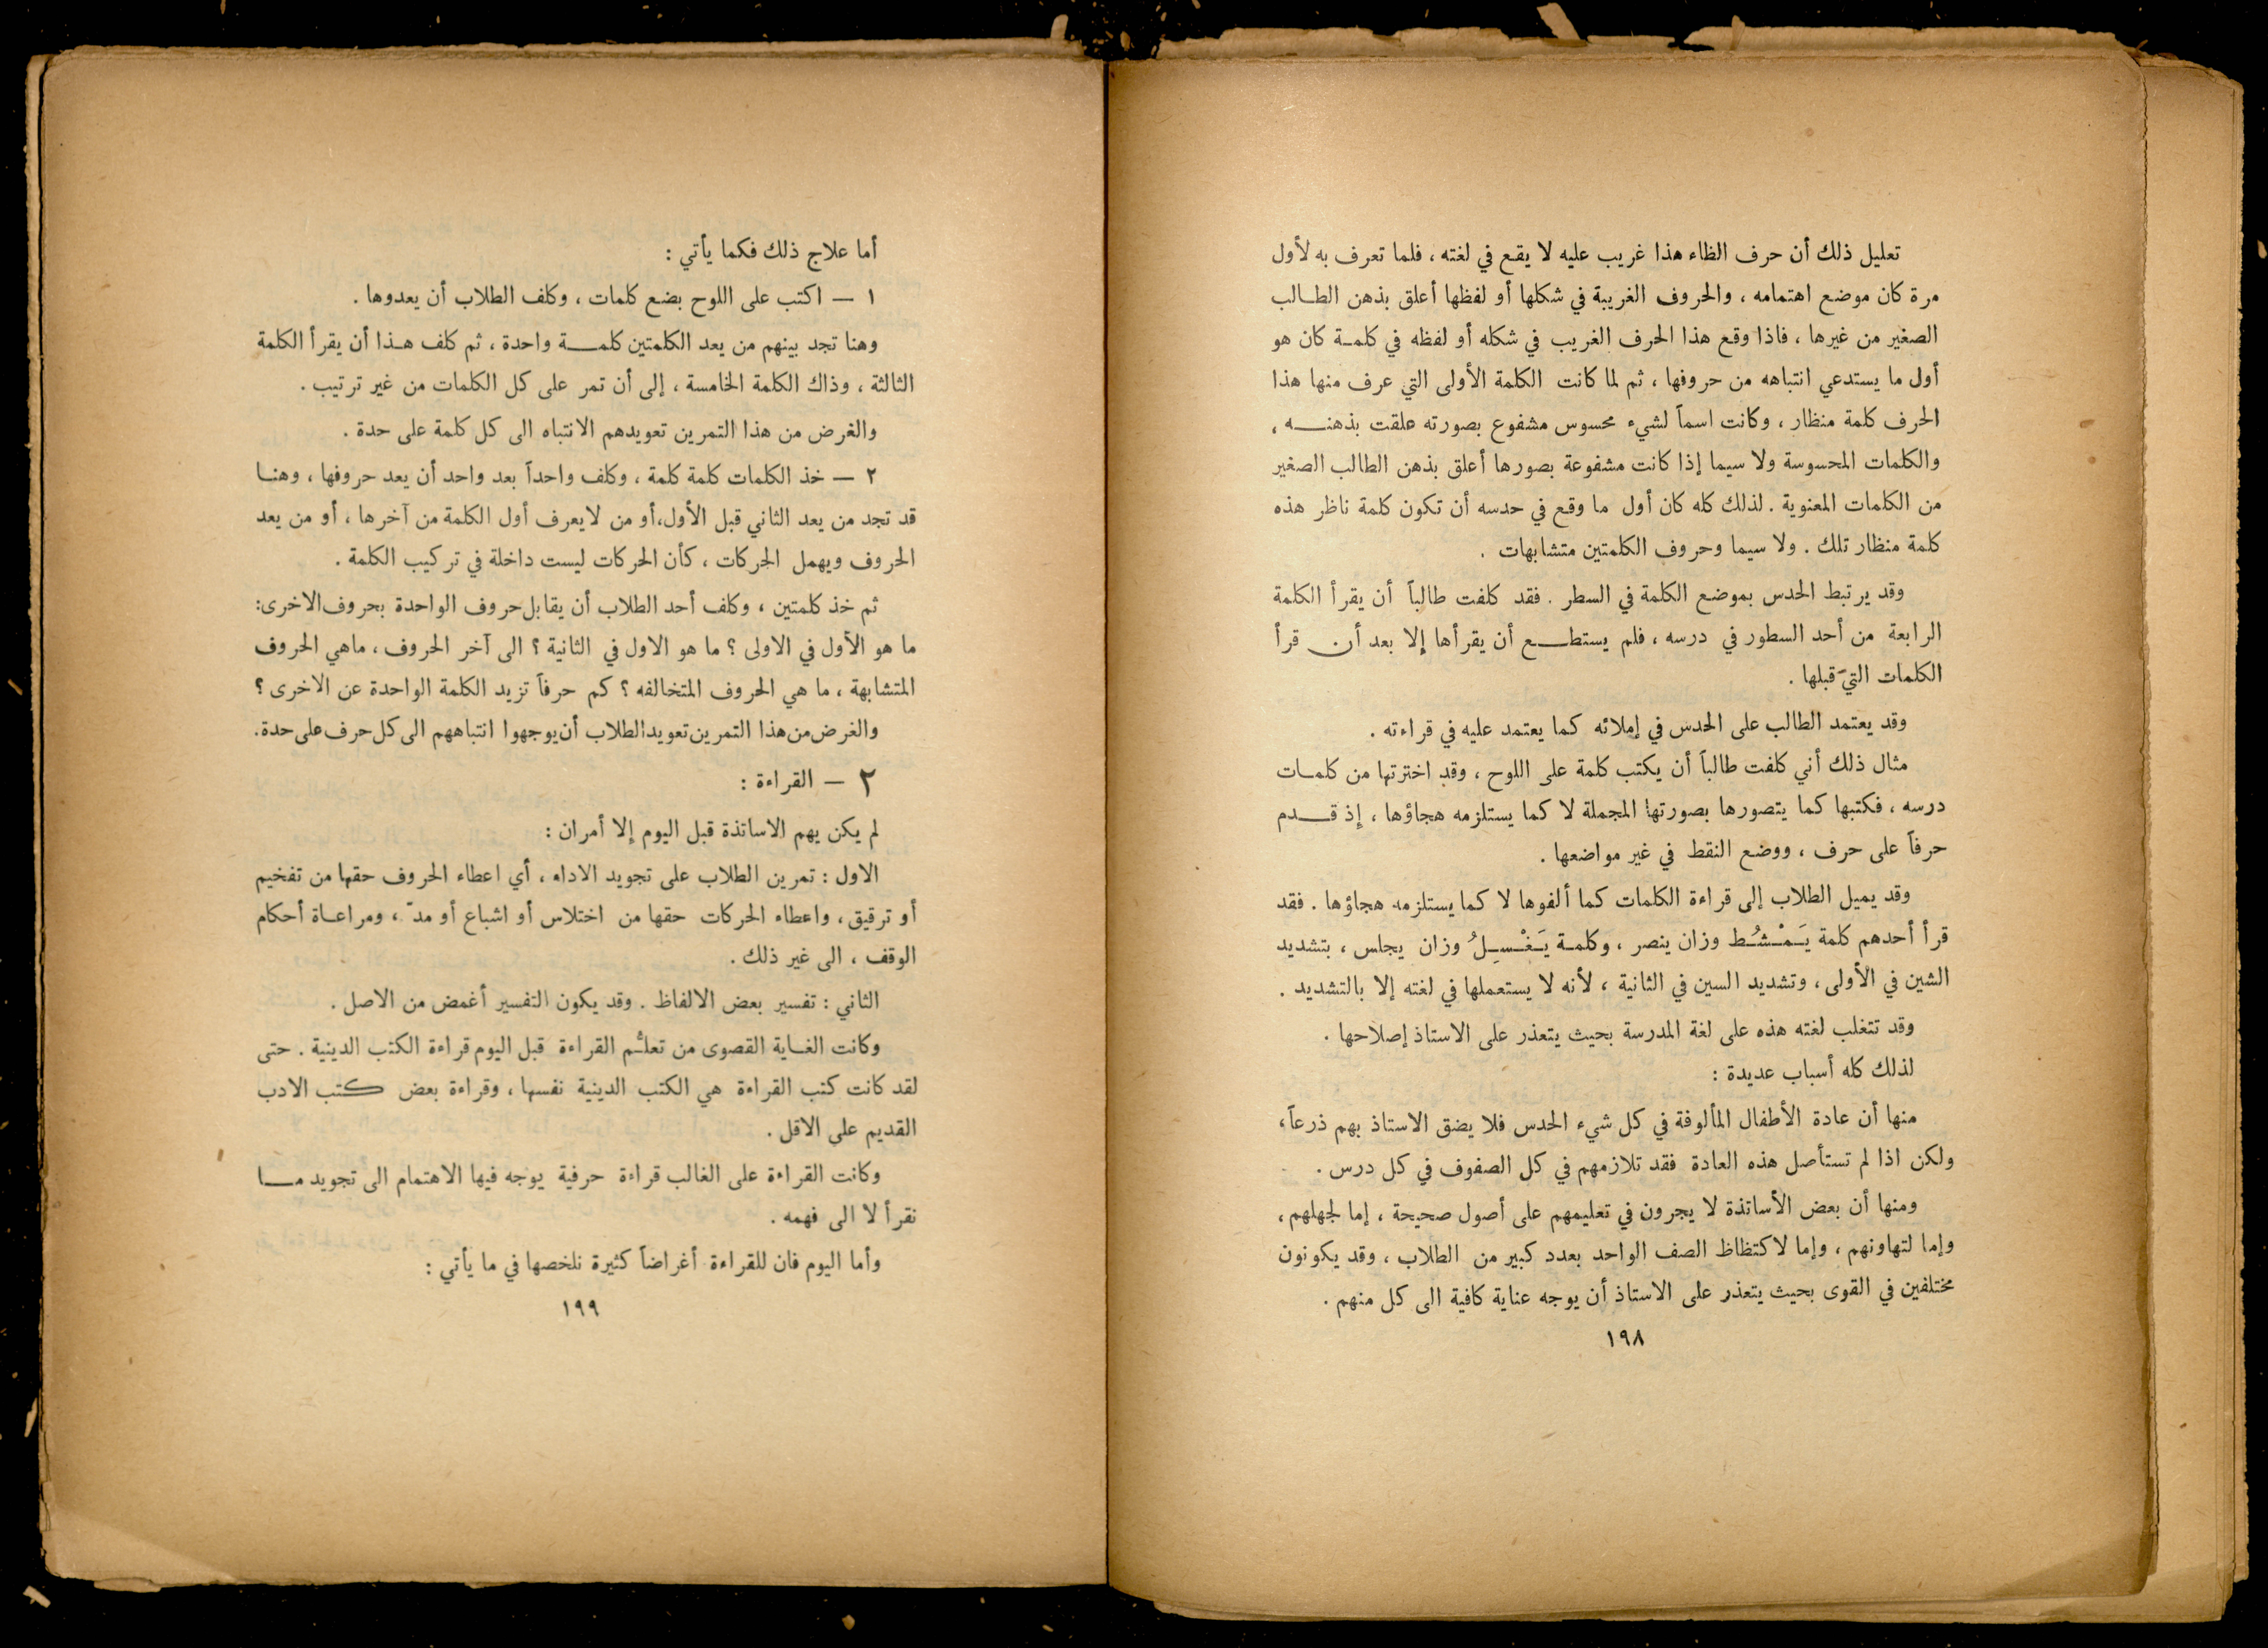 تعليل ذلك أن حرف الظاء هذا غريب عليه لا يقع في لغته ، فلما تعرف به لأول
مرة كان موضع اهتمامه ، والحروف الغريبة في شكلها أو لفظها أعلق بذهن الطالب
الصغير من غيرها ، فاذا وقع هذا الحرف الغريب في شكله أو لفظه في كلمة كان هو
أول ما يستدعي انتباهه من حروفها ، ثم لما كانت الكلمة الأولى التي عرف منها هذا
الحرف كلمة منظار ، وكانت اسماً لشيء محسوس مشفوع بصورته علقت بذهنه ،
والكلمات المحسوسة ولا سيما إذا كانت مشفوعة بصورها أعلق بذهن الطالب الصغير
من الكلمات المعنوية . لذلك كله كان أول ما وقع في حدسه أن تكون كلمة ناظر هذه
كلمة منظار تلك . ولا سيما وحروف الكلمتين متشابهات .
وقد يرتبط الحدس بموضع الكلمة في السطر . فقد كلفت طالباً أن يقرأ الكلمة
الرابعة من أحد السطور في درسه ، فلم يستطع أن يقرأها إلا بعد أن قرأ
الكلمات التي قبلها .
وقد يعتمد الطالب على الحدس في إملائه كما يعتمد عليه في قراءته .
مثال ذلك أني كلفت طالباً أن يكتب كلمة على اللوح ، وقد اخترتها من كلمات
درسه ، فكتبها كما يتصورها بصورتها المجملة لا كما يستلزمه هجاؤها ، إذ قدم
حرفاً على حرف ، ووضع النقط في غير مواضعها .
وقد يميل الطلاب إلى قراءة الكلمات كما ألفوها لا كما يستلزمه هجاؤها . فقد
قرأ أحدهم كلمة يَمْشُط وزان ينصر ، وكلمة يَغْسِلُ وزان يجلس ، بتشديد
الشين في الأولى ، وتشديد السين في الثانية ، لأنه لا يستعملها في لغته إلا بالتشديد .
وقد تتغلب لغته هذه على لغة المدرسة بحيث يتعذر على الاستاذ إصلاحها .
لذلك كله أسباب عديدة :
منها أن عادة الأطفال المألوفة في كل شيء الحدس فلا يضق الاستاذ بهم ذرعاً ،
ولكن اذا لم تستأصل هذه العادة فقد تلازمهم في كل الصفوف في كل درس .
ومنها أن بعض الأساتذة لا يجرون في تعليمهم على أصول صحيحة ، إما لجهلهم ،
وإما لتهاونهم ، وإما لاكتظاظ الصف الواحد بعدد كبير من الطلاب ، وقد يكونون
مختلفين في القوى بحيث يتعذر على الاستاذ أن يوجه عناية كافية الى كل منهم .
١٩٨
أما علاج ذلك فكما يأتي :
١ — اكتب على اللوح بضع كلمات ، وكلف الطلاب أن يعدوها .
وهنا تجد بينهم من يعد الكلمتين كلمة واحدة ، ثم كلف هذا أن يقرأ الكلمة
الثالثة ، وذاك الكلمة الخامسة ، إلى أن تمر على كل الكلمات من غير ترتيب .
والغرض من هذا التمرين تعويدهم الانتباه الى كل كلمة على حدة .
٢ — خذ الكلمات كلمة كلمة ، وكلف واحداً بعد واحد أن يعد حروفها ، وهنا
قد تجد من يعد الثاني قبل الأول، أو من لا يعرف أول الكلمة من آخرها ، أو من يعد
الحروف ويهمل الحركات ، كأن الحركات ليست داخلة في تركيب الكلمة .
ثم خذ كلمتين ، وكلف أحد الطلاب أن يقابل حروف الواحدة بحروف الاخرى :
ما هو الأول في الاولى ؟ ما هو الاول في الثانية ؟ الى آخر الحروف ، ماهي الحروف
المتشابهة ، ما هي الحروف المتخالفه ؟ كم حرفاً تزيد الكلمة الواحدة عن الاخرى ؟
والغرض من هذا التمرين تعويد الطلاب أن يوجهوا انتباههم الى كل حرف على حدة .
٢ — القراءة :
لم يكن يهم الاساتذة قبل اليوم إلا أمران :
الاول : تمرين الطلاب على تجويد الاداء ، أي اعطاء الحروف حقها من تفخيم
أو ترقيق ، واعطاء الحركات حقها من اختلاس أو اشباع أو مدّ ، ومراعاة أحكام
الوقف ، الى غير ذلك .
الثاني : تفسير بعض الالفاظ . وقد يكون التفسير أغمض من الاصل .
وكانت الغاية القصوى من تعلُّم القراءة قبل اليوم قراءة الكتب الدينية . حتى
لقد كانت كتب القراءة هي الكتب الدينية نفسها ، وقراءة بعض كتب الادب
القديم على الاقل .
وكانت القراءة على الغالب قراءة حرفية يوجه فيها الاهتمام الى تجويد ما
نقرأ لا الى فهمه .
وأما اليوم فان للقراءة أغراضاً كثيرة نلخصها في ما يأتي :
١٩٩